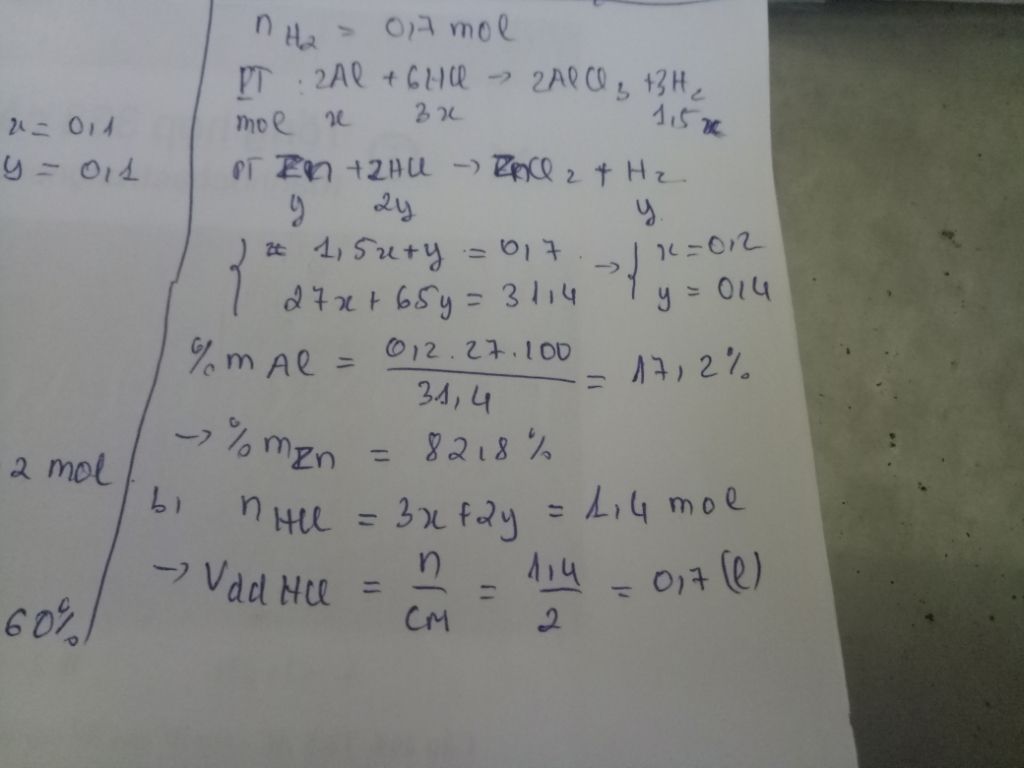 x = 0,1
y = 0,1
2 mol
60%
n H2 = 0,7 mol
PT : 2Al + 6HCl → 2AlCl3 + 3H2
mol x 3x 1,5x
PT Zn + 2HCl → ZnCl2 + H2
y 2y y
{ 1,5x + y = 0,7 → { x = 0,2
27x + 65y = 31,4 y = 0,4
% m Al = 0,2.27.100 / 31,4 = 17,2%
→ % m Zn = 82,8%
b, n HCl = 3x + 2y = 1,4 mol
→ Vdd HCl = n / CM = 1,4 / 2 = 0,7 (l)